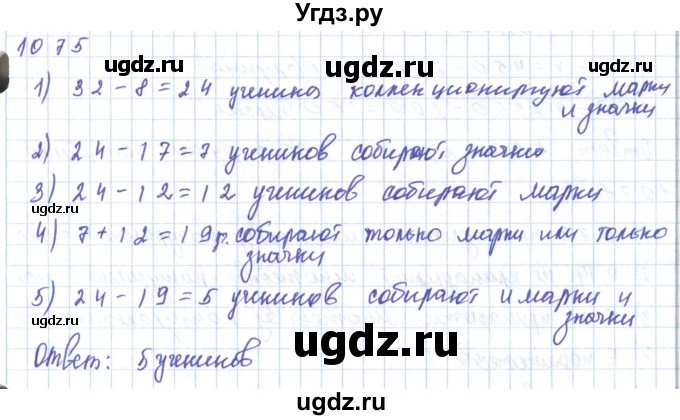 Угдз.ру
1075
ugdz.ru ugdz.ru
1) 32-8=24 ученика коллекционируют марки
и значки
2) 24-17=7 учеников собирают значки
3) 24-12=12 учеников собирают марки
ugdz.ru
4) 7+12=19 р. собирают только марки или только
значки
ugdz.ru ugdz.ru
5) 24-19=5 учеников собирают и марки и
значки
ugdz.ru
Ответ: 5 учеников
ugdz.ru ugdz.ru